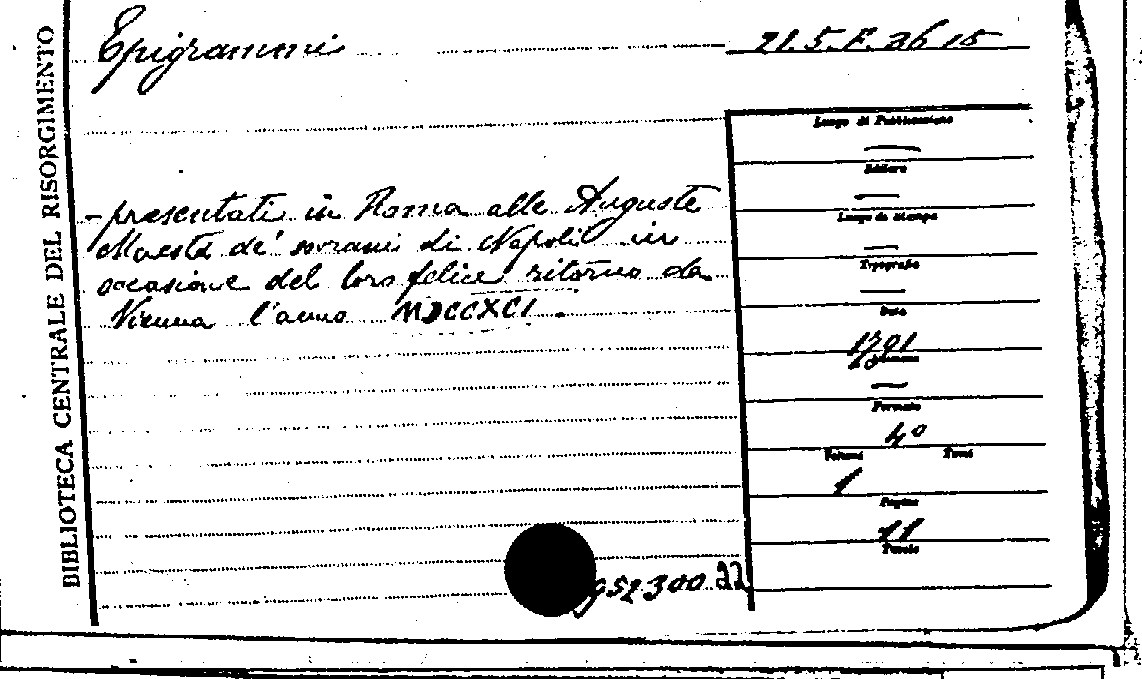 BIBLIOTECA CENTRALE DEL RISORGIMENTO
Epigrammi
21.5.F.36 15
- presentati in Roma alle Auguste
Maestà de' sovrani di Napoli in
occasione del loro felice ritorno da
Vienna l'anno MDCCXCI.
Luogo di Pubblicazione
Editore
Luogo di stampa
Tipografo
Data
1791
Formato
4º
Volumi Tomi
1
Pagine
11
Tavole
952300.22